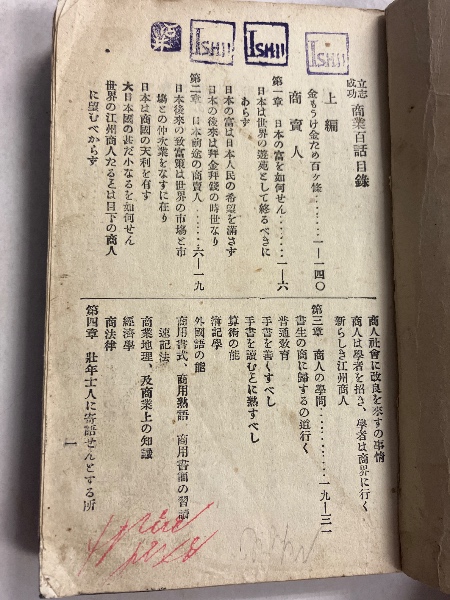 ISHII
ISHII
ISHII
立志
成功
商業百話目錄
上編
金もうけ金ため百ケ條......一―一四〇
商賣人
第一章 日本の富を如何せん......一―六
日本は世界の遊苑として終るべきに
あらず
日本の富は日本人民の希望を滿さず
日本の後來は拜金拜錢の時世なり
第二章 日本前途の商賣人......六―一九
日本後來の致富策は世界の市場と市
場との仲次業をなすに在り
日本は商國の天利を有す
大日本國の甚だ小なるを如何せん
世界の江州商人たるとは目下の商人
に望むべからず
商人社會に改良を來すの事情
商人は學者を招き、學者は商界に行く
新らしき江州商人
第三章 商人の學問......一九―三一
書生の商に歸するの道行く
普通敎育
手書を善くすべし
手書を讀むとに熟すべし
算術の能
簿記學
外國語の能
商用書式、商用熟語、商用書獨の習讀
速記法
商業地理、及商業上の知識
經濟學
商法律
第四章 壯年士人に寄語せんとする所
1